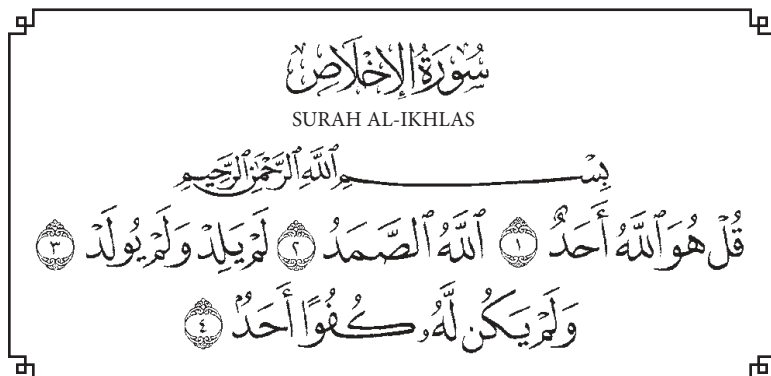 سُورَةُ الإِخْلَاصِ
SURAH AL-IKHLAS
بِسْمِ ٱللَّهِ ٱلرَّحْمَٰنِ ٱلرَّحِيمِ
قُلْ هُوَ ٱللَّهُ أَحَدٌ ١ ٱللَّهُ ٱلصَّمَدُ ٢ لَمْ يَلِدْ وَلَمْ يُولَدْ ٣
وَلَمْ يَكُن لَّهُۥ كُفُوًا أَحَدٌۢ ٤